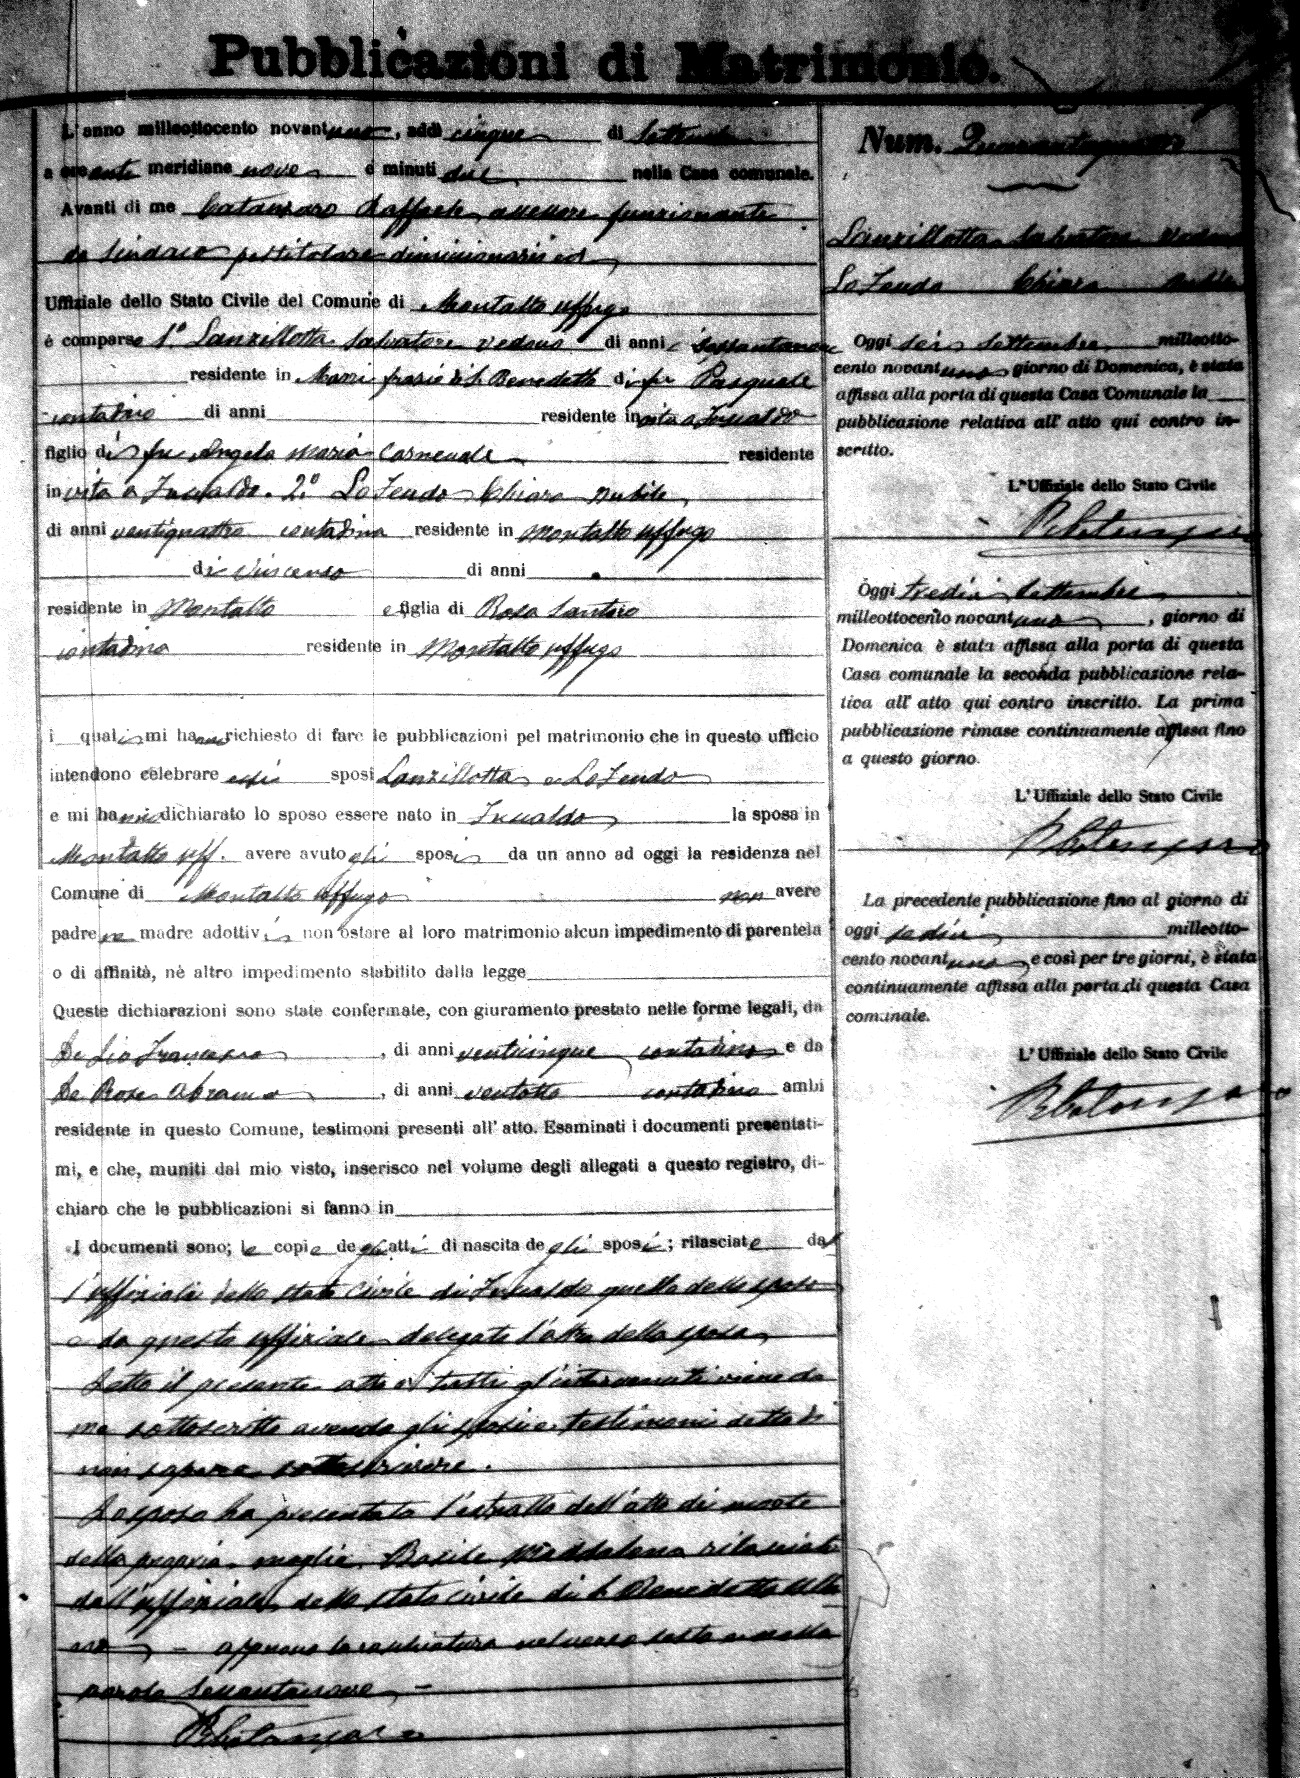 Pubblicazioni di Matrimonio.
L'anno milleottocento novantuno, addì cinque di Settembre
a ore ante meridiane nove e minuti dieci nella Casa comunale.
Avanti di me Catanzaro Raffaele assessore funzionante
da Sindaco pel titolare dimissionario ed
Uffiziale dello Stato Civile del Comune di Montalto Uffugo
è comparso 1.º Lanzillotta Salvatore vedovo di anni sessantanove
residente in frazione S. Benedetto di fu Pasquale
contadino di anni residente in vita a Fuscaldo
figlio di fu Angela Maria Carnevale residente
in vita a Fuscaldo. 2.º Lo Feudo Chiara nubile,
di anni ventiquattro contadina residente in Montalto Uffugo
di Vincenzo di anni
residente in Montalto e figlia di Rosa Santoro
contadina residente in Montalto Uffugo
i quali mi hanno richiesto di fare le pubblicazioni pel matrimonio che in questo ufficio
intendono celebrare essi sposi Lanzillotta e Lo Feudo
e mi hanno dichiarato lo sposo essere nato in Fuscaldo la sposa in
Montalto Uff. avere avuto gli sposi da un anno ad oggi la residenza nel
Comune di Montalto Uffugo non avere
padre ne madre adottivi non ostare al loro matrimonio alcun impedimento di parentela
o di affinità, nè altro impedimento stabilito dalla legge
Queste dichiarazioni sono state confermate, con giuramento prestato nelle forme legali, da
De Lio Francesco, di anni venticinque contadino e da
De Rose Abramo, di anni ventotto contadino ambi
residente in questo Comune, testimoni presenti all' atto. Esaminati i documenti presentati-
mi, e che, muniti dal mio visto, inserisco nel volume degli allegati a questo registro, di-
chiaro che le pubblicazioni si fanno in
I documenti sono; le copie degli atti di nascita degli sposi; rilasciate dal
l'uffiziale dello stato civile di Fuscaldo quella dello sposo
e da questo uffiziale delegato l'altra della sposa
Letto il presente atto a tutti gl'intervenuti viene da
me sottoscritto avendo gli sposi e testimoni detto di
non sapere sottoscrivere.
Lo sposo ha presentato l'estratto dell'atto di morte
della propria moglie Basile Maddalena rilasciato
dall'uffiziale dello stato civile di S. Benedetto Ulla
no - approvo la cancellatura nel verso sesto e nella
parola sessantanove -
R. Catanzaro
Num. Quarantaquattro
Lanzillotta Salvatore vedovo
Lo Feudo Chiara nubile
Oggi sei settembre milleotto-
cento novantuno giorno di Domenica, è stata
affissa alla porta di questa Casa Comunale la
pubblicazione relativa all' atto qui contro in-
scritto.
L' Uffiziale dello Stato Civile
R. Catanzaro
Oggi tredici Settembre
milleottocento novantuno, giorno di
Domenica è stata affissa alla porta di questa
Casa comunale la seconda pubblicazione rela-
tiva all' atto qui contro inscritto. La prima
pubblicazione rimase continuamente affissa fino
a questo giorno.
L' Uffiziale dello Stato Civile
R. Catanzaro
La precedente pubblicazione fino al giorno di
oggi sedici milleotto-
cento novantuno, e così per tre giorni, è stata
continuamente affissa alla porta di questa Casa
comunale.
L' Uffiziale dello Stato Civile
R. Catanzaro